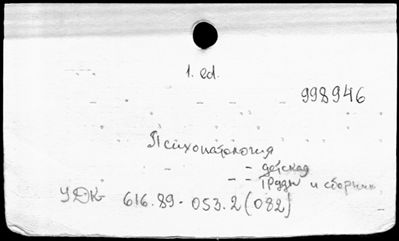 1. ed.
998946
Психопатология
- детская
- - Труды и сборник
УДК 616.89-053.2(082)